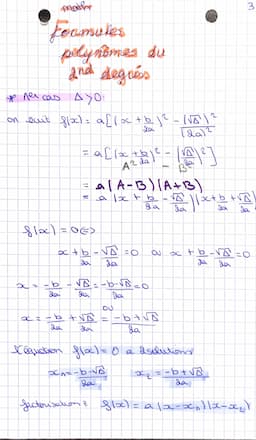 3
Formules
polynômes du
2nd degrés
* 1er cas Δ>0:
on suit f(x) = a[(x + b/2a)² - (√Δ)²/(2a)²]
= a[(x + b/2a)² - (√Δ/2a)²]
A² - B²
= a(A-B)(A+B)
= a(x + b/2a - √Δ/2a)(x + b/2a + √Δ/2a)
f(x) = 0 ⟺
x + b/2a - √Δ/2a = 0 ou x + b/2a - √Δ/2a = 0
x = -b/2a - √Δ/2a = -b-√Δ/2a = 0
ou
x = -b/2a + √Δ/2a = -b+√Δ/2a
L'équation f(x) = 0 a 2 solutions
x₁ = -b-√Δ/2a x₂ = -b+√Δ/2a
factorisation : f(x) = a(x-x₁)(x-x₂)